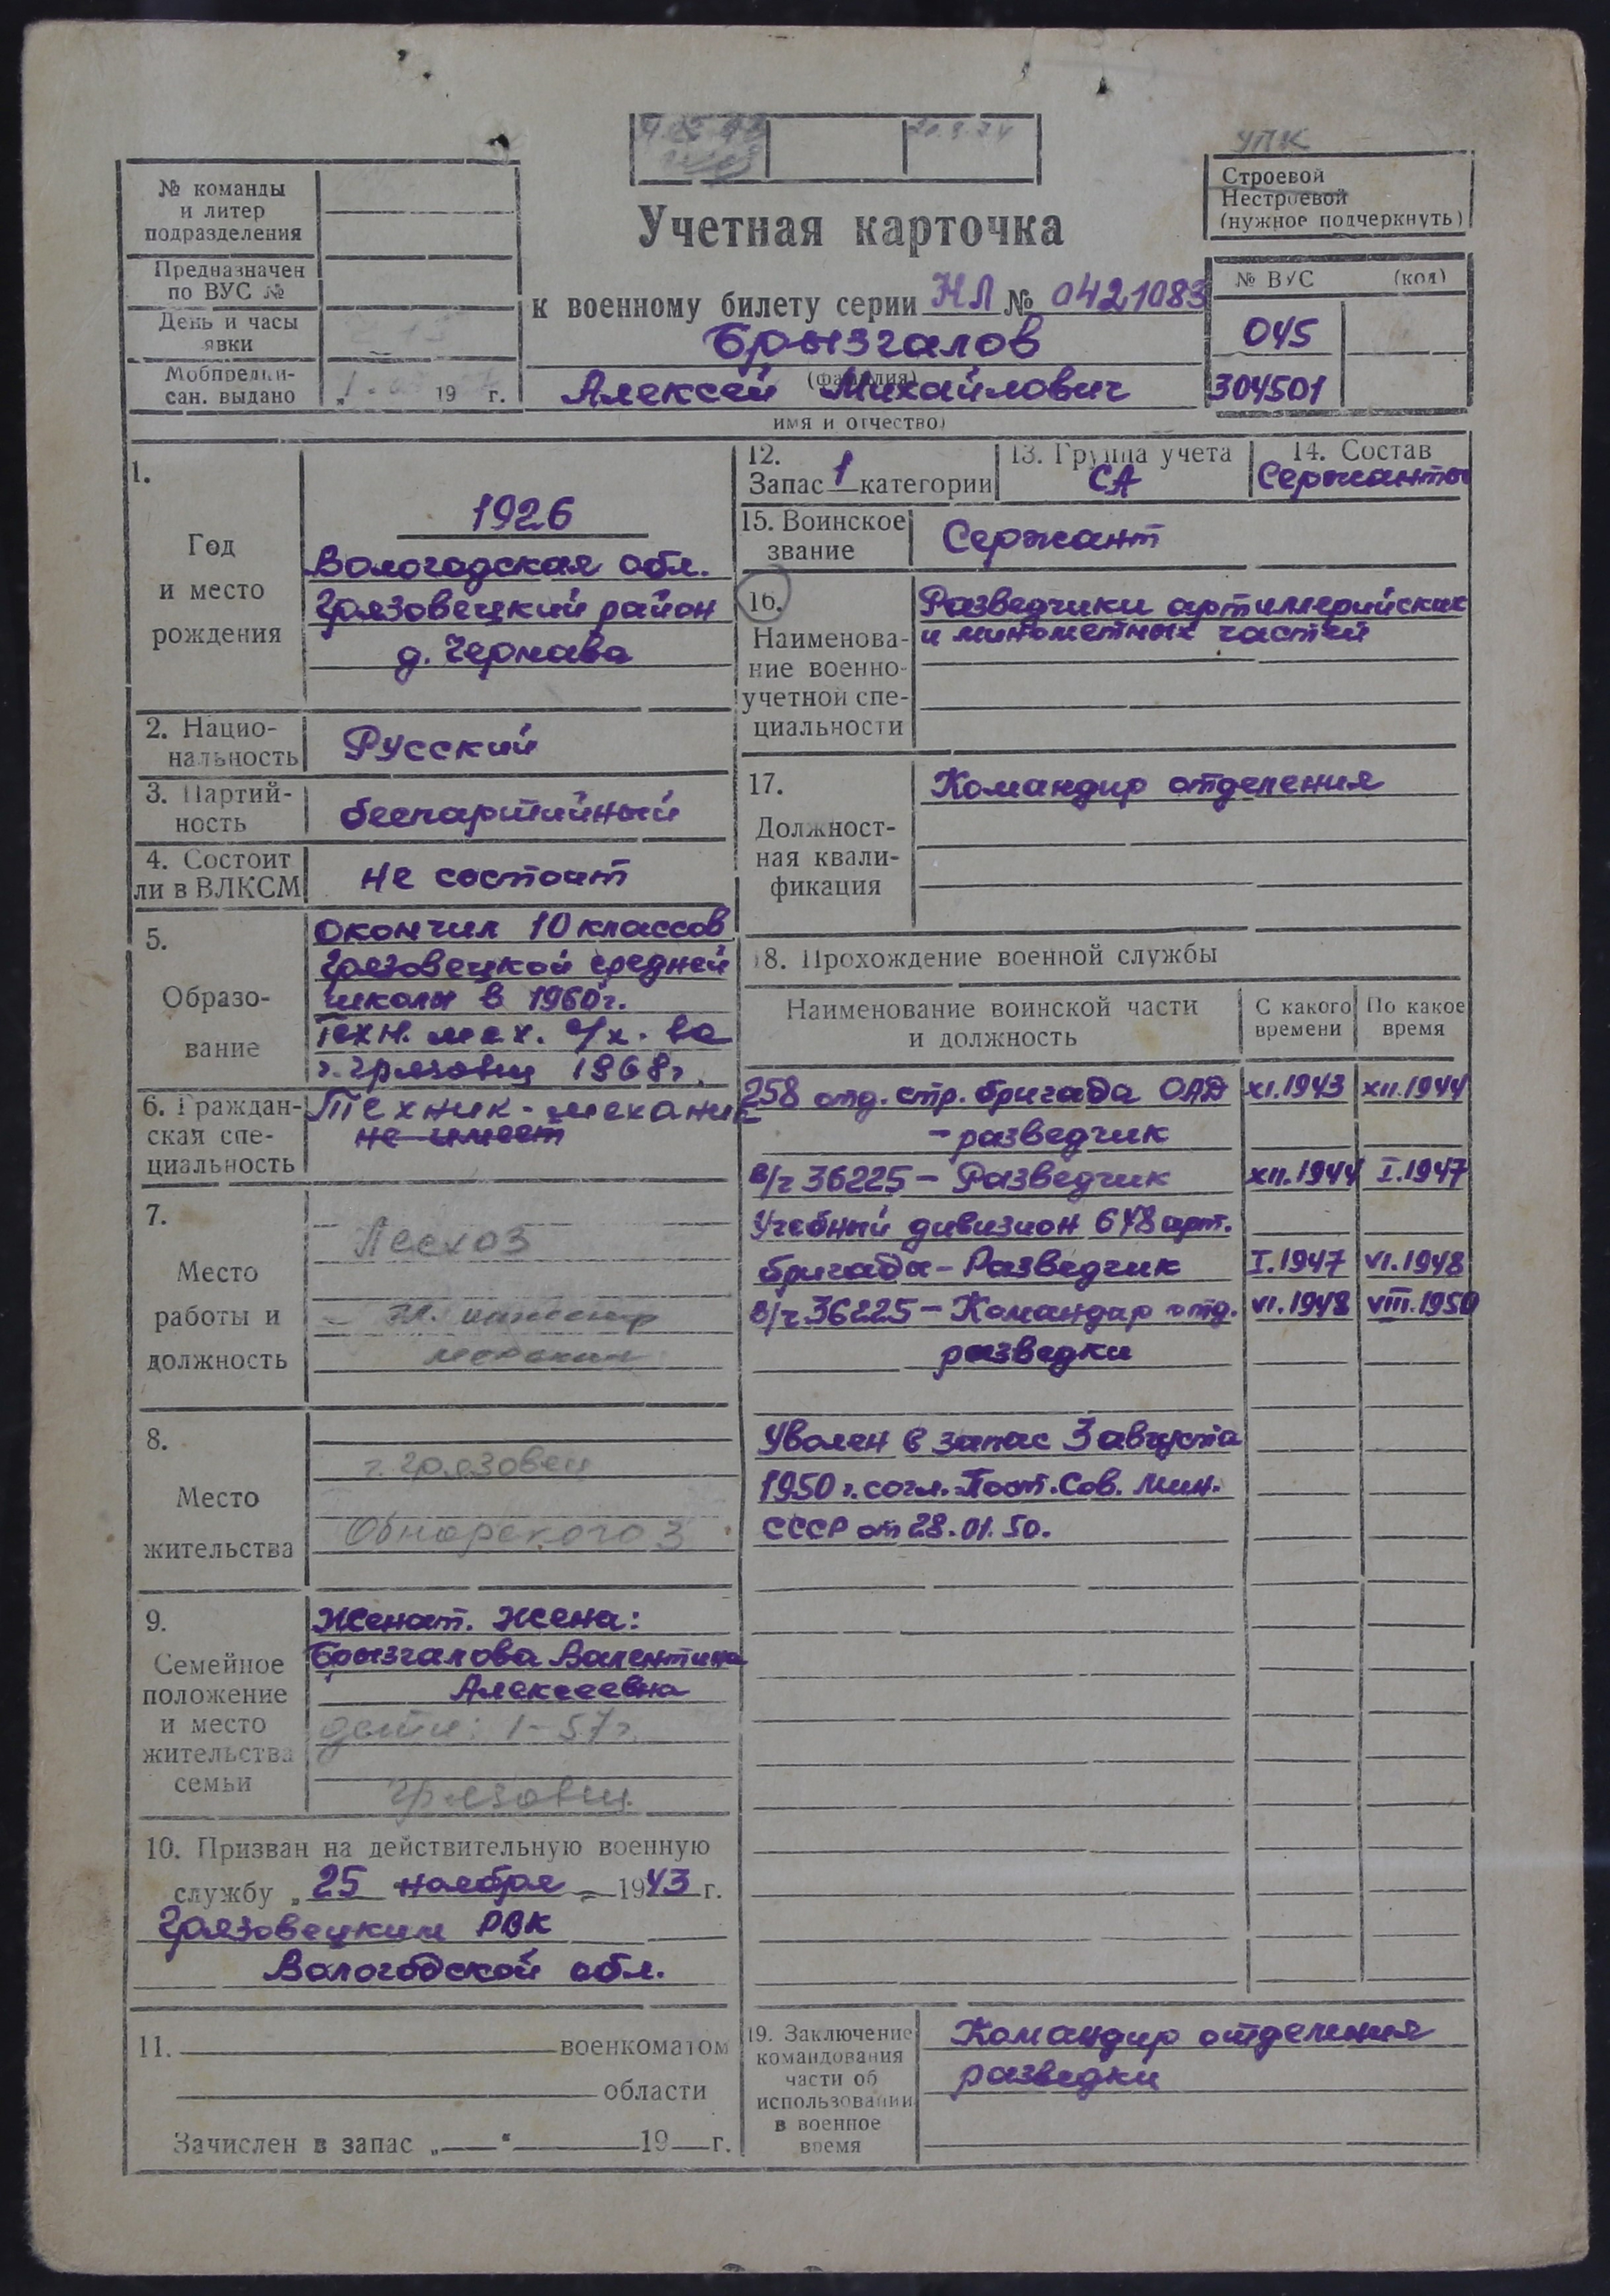 20.9.74
УПК
№ команды
и литер
подразделения
Предназначен
по ВУС №
День и часы
явки
Мобпредпи-
сан. выдано
„ 19 г.
Строевой
Нестроевой
(нужное подчеркнуть)
Учетная карточка
к военному билету серии НЛ № 0421083
Брызгалов
(фамилия)
Алексей Михайлович
имя и отчество)
№ ВУС (код)
045
304501
1.
Год
и место
рождения
1926
Вологодская обл.
Грязовецкий район
д. Чернава
2. Нацио-
нальность
Русский
3. Партий-
ность
беспартийный
4. Состоит
ли в ВЛКСМ
не состоит
5.
Образо-
вание
Окончил 10 классов
Грязовецкой средней
школы в 1960г.
Техн. мех. с/х. ва
г. Грязовец 1968г.
6. Граждан-
ская спе-
циальность
Техник-механик
не имеет
7.
Место
работы и
должность
Лесхоз
8.
Место
жительства
г. Грязовец
Обнорского 3
9.
Семейное
положение
и место
жительства
семьи
Женат. Жена:
Брызгалова Валентина
Алексеевна
дети: 1-57г.
Грязовец
10. Призван на действительную военную
службу „ 25 ноября „ 1943 г.
Грязовецким РВК
Вологодской обл.
11. военкоматом
области
Зачислен в запас „ “ 19 г.
12.
Запас 1 категории
13. Группа учета
СА
14. Состав
Сержанты
15. Воинское
звание
Сержант
16.
Наименова-
ние военно-
учетной спе-
циальности
Разведчики артиллерийских
и минометных частей
17.
Должност-
ная квали-
фикация
Командир отделения
18. Прохождение военной службы
Наименование воинской части
и должность
С какого
времени
По какое
время
258 отд. стр. бригада ОАД XI.1943 XII.1944
- разведчик
В/ч 36225 - Разведчик XII.1944 I.1947
Учебный дивизион 648 арт.
бригады - Разведчик I.1947 VI.1948
В/ч 36225 - Командир отд. VI.1948 VIII.1950
разведки
Уволен в запас 3 августа
1950 г. согл. Пост. Сов. Мин.
СССР от 28.01.50.
19. Заключение
командования
части об
использовании
в военное
время
Командир отделения
разведки